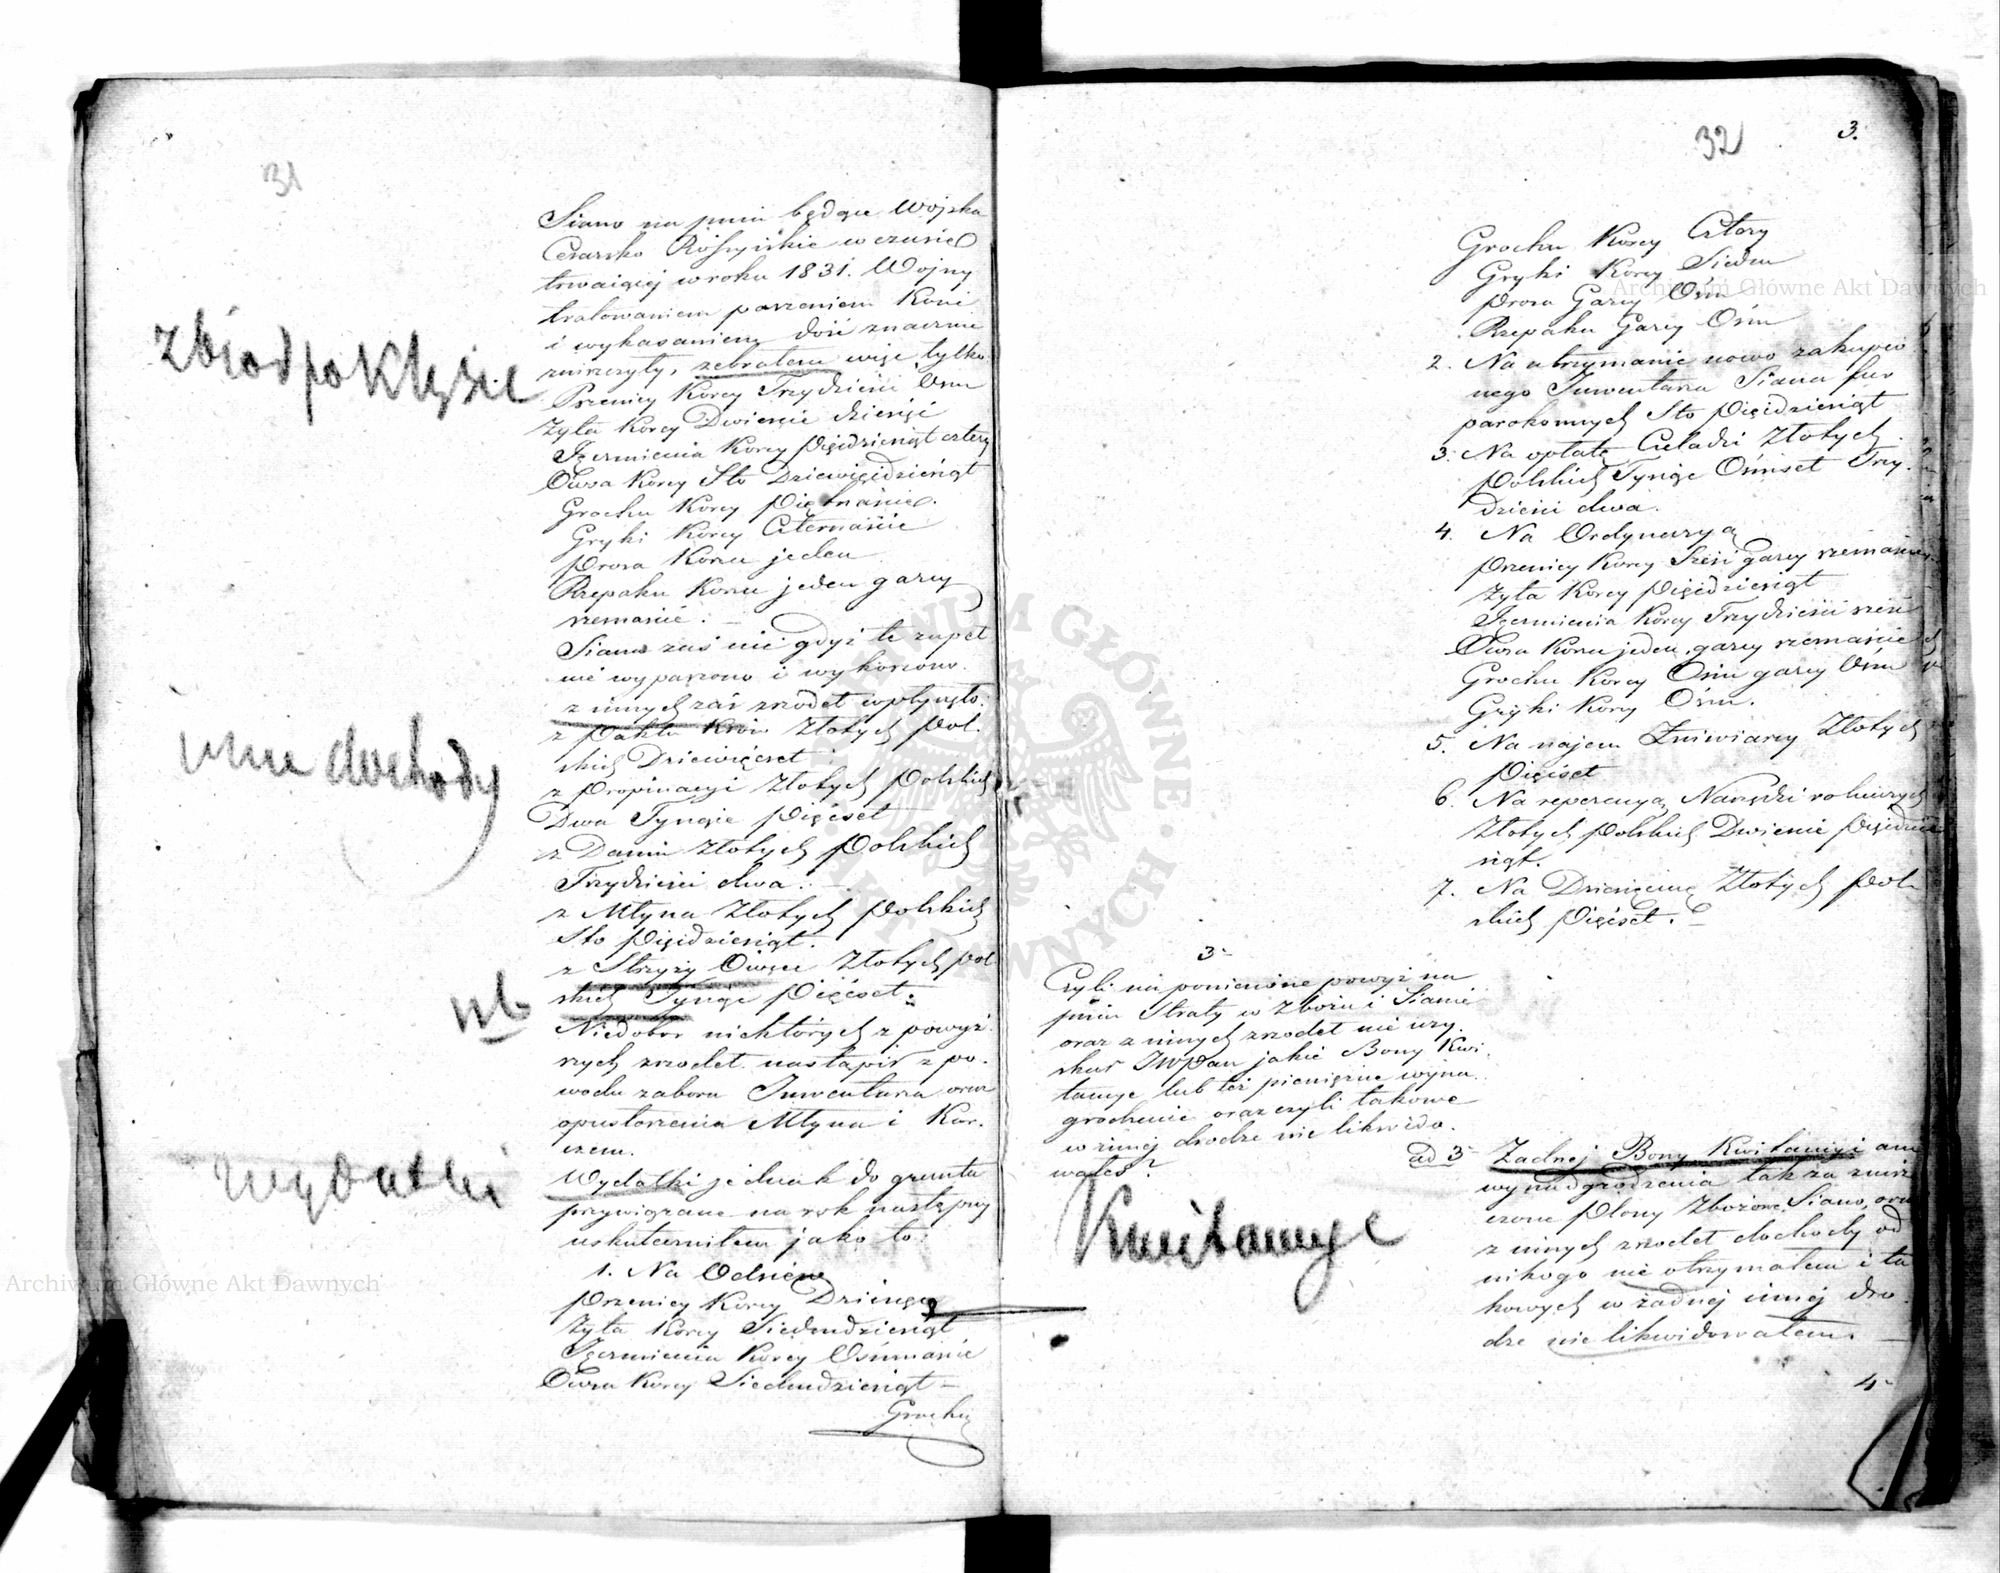 31
Siano na pniu będące Wojska
Cesarsko Rossyiskie w czasie
trwaiącej w roku 1831. Wojny
tratowaniem parzeniem Koni
i wykaszaniem dość znacznie
zniszczyły, zebrałem więc tylko
Pszenicy Korcy Trzydzieści Ośm
Żyta Korcy Dwieście dziesięć
Jęczmienia Korcy Pięćdziesiąt cztery
Owsa Korcy Sto Dziewięćdziesiąt
Grochu Korcy Piętnaście.
Gryki Korcy Czternaście
Prosa Korzec jeden
Rzepaku Korzec jeden garcy
szesnaście. –
Siana zaś nie gdyż te zupeł
nie wypasiono i wykoszono.
z innych zaś zrzodeł wpłynęło:
z Paktu Krów Złotych Pol.
skich Dziewięćset
z Propinacyi Złotych Polskich
Dwa Tysiące Pięćset
z Danin Złotych Polskich
Trzydzieści dwa. –
z Młyna Złotych Polskich
Sto Pięćdziesiąt.
z Strzyży Owiec Złotych Pol
skich Tysiąc Pięćset.
Niedobor niektórych z powyż.
szych zrzodeł nastąpił z po.
wodu zaboru Inwentarza oraz
opustoszenia Młyna i Kar.
czem.
Wydatki jednak do gruntu
przywiązane na rok następny
uskuteczniłem jako to:
1. Na Odsiew
Pszenicy Korcy Dziesięć
Żyta Korcy Siedmdziesiąt
Jęczmienia Korcy Ośmnaście
Owsa Korcy Siedmdziesiąt –
Grochu
zbiór po klęsce
inne dochody
nb
wydatki
32
3.
Grochu Korcy Cztery
Gryki Korcy Siedm
Prosa Garcy Ośm
Rzepaku Garcy Ośm
2. Na utrzymanie nowo zakupio
nego Inwentarza Siana fur
parokonnych Sto Pięćdziesiąt
3. Na opłatę Czeladzi Złotych
Polskich Tysiąc Ośmset Trzy.
dzieści dwa.
4. Na Ordynaryą
Pszenicy Korcy Sześć garcy szesnaście
Żyta Korcy Pięćdziesiąt
Jęczmienia Korcy Trzydzieści sześć
Owsa Korzec jeden, garcy szesnaście
Grochu Korcy Ośm garcy Ośm
Gryki Korcy Ośm.
5. Na najem Żniwiarzy Złotych
Pięćset
6. Na reperacyą Narzędzi rolniczych
Złotych Polskich Dwieście Pięćdzie
siąt.
7. Na Dziesięcinę Złotych Pol
skich Pięćset. –
3–
Czyli na poniesione powyż na
pniu Straty w Zbożu i Sianie
oraz z innych zrzodeł nie uzy.
skał JWPan jakie Bony Kwi.
tancye lub też pieniężne wyna.
grodzenie oraz czyli takowe
w innej drodze nie likwido.
wałeś?
Kwitancye
ad 3– Żadnej Bony Kwitancyi ani
wynadgrodzenia tak za znisz
czone Plony Zbożowe, Siano, oraz
z innych zrzodeł dochody od
nikogo nie otrzymałem i ta
kowych w żadnej innej dro.
dze nie likwidowałem. –
4–
Archiwum Główne Akt Dawnych
Archiwum Główne Akt Dawnych
ARCHIWUM GŁÓWNE
AKT DAWNYCH